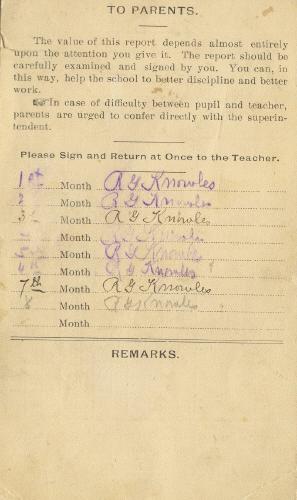 TO PARENTS.
The value of this report depends almost entirely
upon the attention you give it. The report should be
carefully examined and signed by you. You can, in
this way, help the school to better discipline and better
work.
☞ In case of difficulty between pupil and teacher,
parents are urged to confer directly with the superin-
tendent.
Please Sign and Return at Once to the Teacher.
1st Month R G Knowles
2 Month R G Knowles
3 Month R G Knowles
Month R G Knowles
5 Month R G Knowles
Month R G Knowles
7th Month R G Knowles
8 Month R G Knowles
Month
REMARKS.